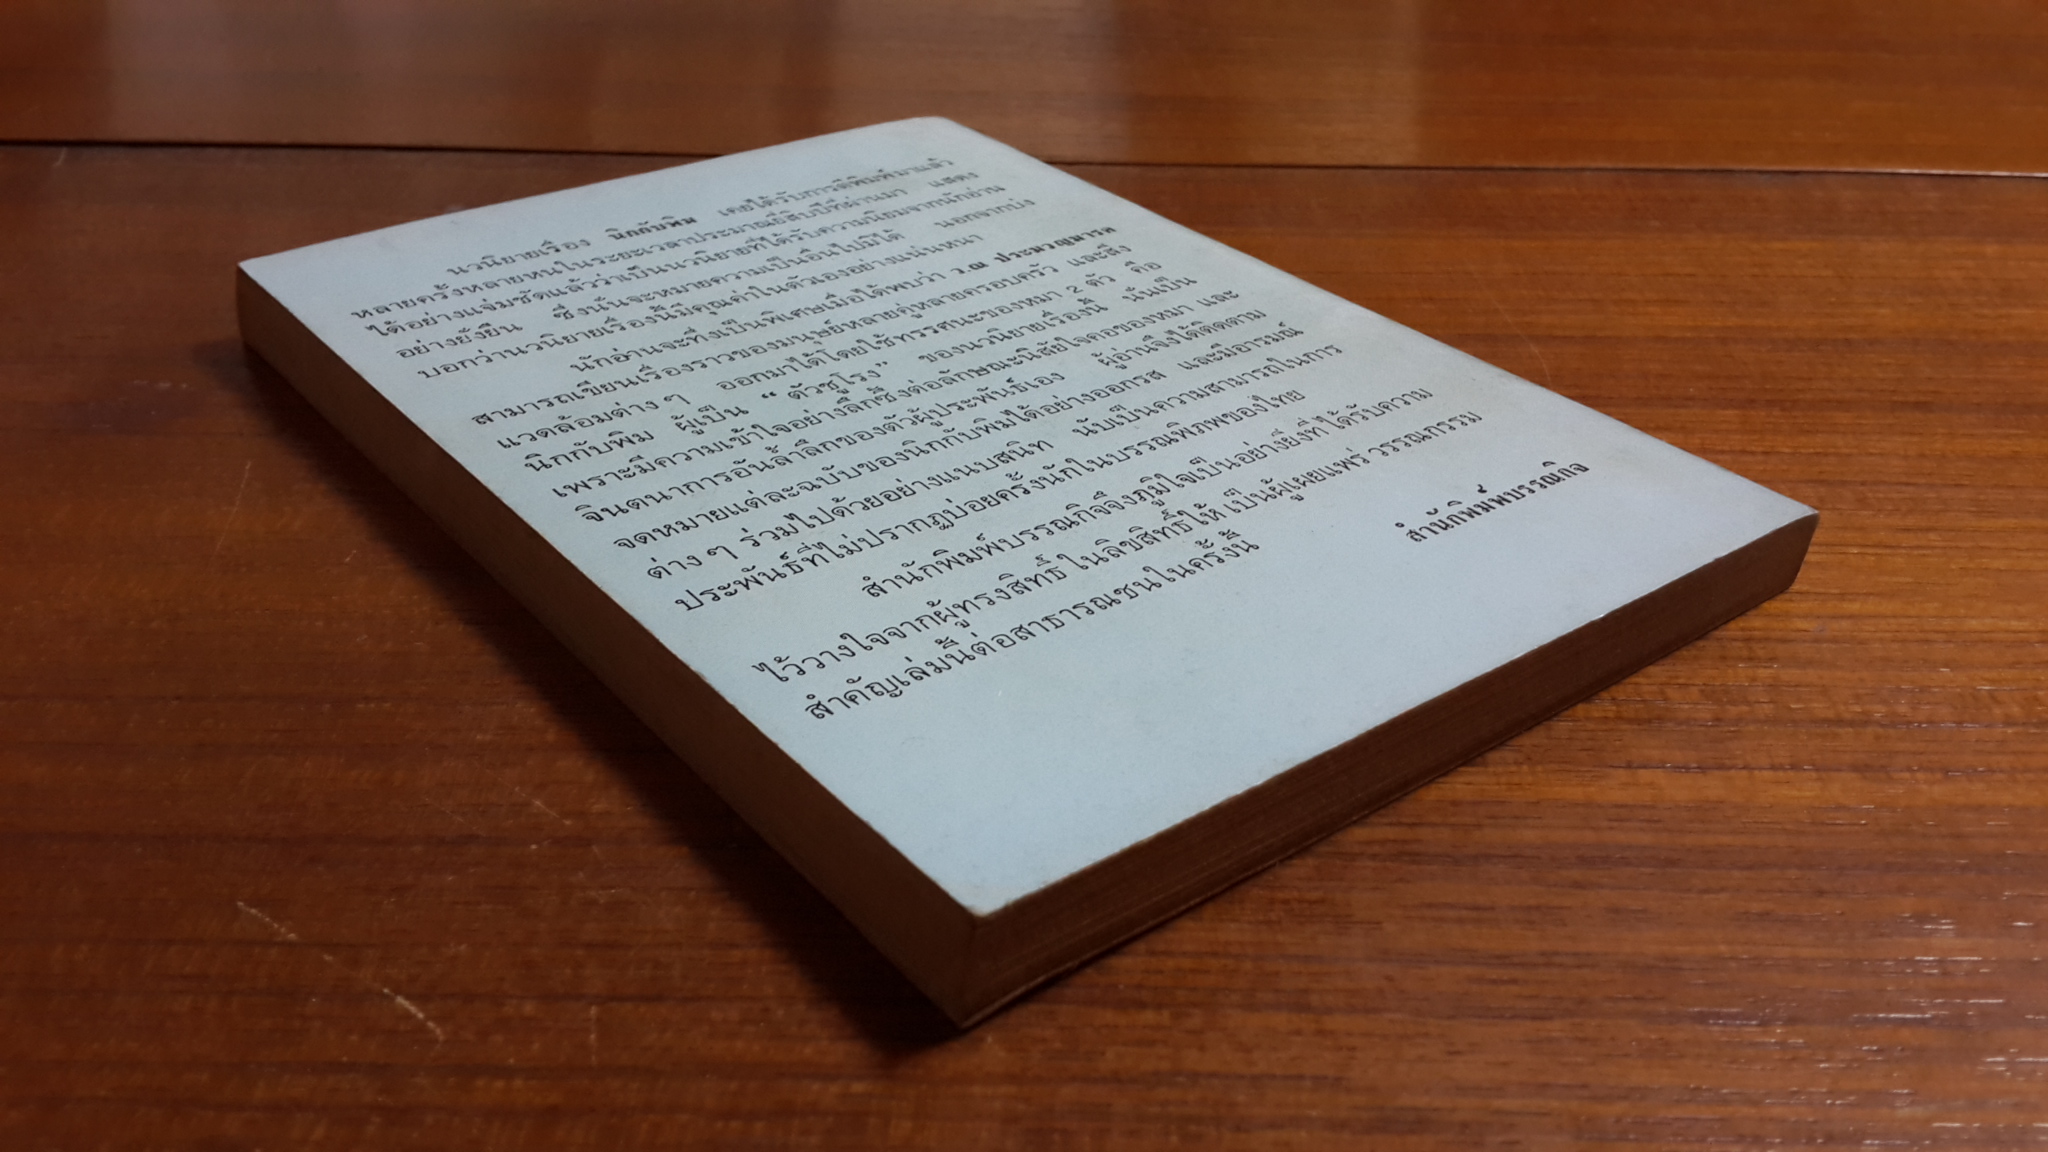 นวนิยายเรื่อง นิกกับพิม เคยได้รับการตีพิมพ์มาแล้ว
หลายครั้งหลายหนในระยะเวลาประมาณยี่สิบปีที่ผ่านมา แสดง
ได้อย่างแจ่มชัดแล้วว่าเป็นนวนิยายที่ได้รับความนิยมจากนักอ่าน
อย่างยั่งยืน ซึ่งนั่นจะหมายความเป็นอื่นไปมิได้ นอกจากบ่ง
บอกว่านวนิยายเรื่องนี้มีคุณค่าในตัวเองอย่างแน่นหนา
นักอ่านจะทึ่งเป็นพิเศษเมื่อได้พบว่า ว.ณ ประมวญมารค
สามารถเขียนเรื่องราวของมนุษย์หลายคู่หลายครอบครัว และสิ่ง
แวดล้อมต่างๆ ออกมาได้โดยใช้ทรรศนะของหมา 2 ตัว คือ
นิกกับพิม ผู้เป็น “ ตัวชูโรง” ของนวนิยายเรื่องนี้ นั่นเป็น
เพราะมีความเข้าใจอย่างลึกซึ้งต่อลักษณะนิสัยใจคอของหมา และ
จินตนาการอันล้ำลึกของตัวผู้ประพันธ์เอง ผู้อ่านจึงได้ติดตาม
จดหมายแต่ละฉบับของนิกกับพิมได้อย่างออกรส และมีอารมณ์
ต่างๆ ร่วมไปด้วยอย่างแนบสนิท นับเป็นความสามารถในการ
ประพันธ์ที่ไม่ปรากฏบ่อยครั้งนักในบรรณพิภพของไทย
สำนักพิมพ์บรรณกิจจึงภูมิใจเป็นอย่างยิ่งที่ได้รับความ
ไว้วางใจจากผู้ทรงสิทธิ์ในลิขสิทธิ์ให้เป็นผู้เผยแพร่วรรณกรรม
สำคัญเล่มนี้ต่อสาธารณชนในครั้งนี้
สำนักพิมพ์บรรณกิจ